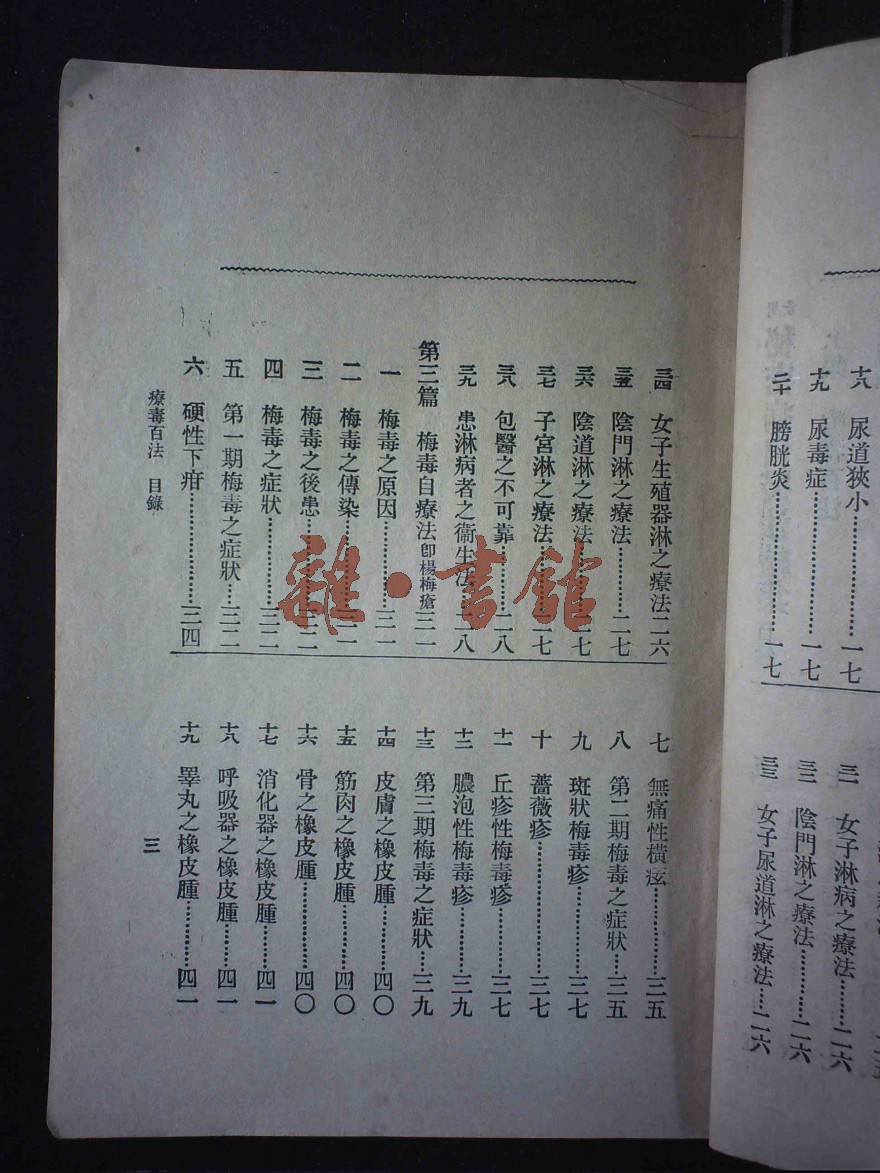 十八 尿道狹小………一七
十九 尿毒症…………一七
二十 膀胱炎…………一七
三一 女子淋病之療法………二六
三二 陰門淋之療法………二六
三三 女子尿道淋之療法……二六
三四 女子生殖器淋之療法二六
三五 陰門淋之療法………二七
三六 陰道淋之療法………二七
三七 子宮淋之療法………二七
三八 包醫之不可靠………二八
三九 患淋病者之衞生法…二八
第三篇 梅毒自療法即楊梅瘡三一
一 梅毒之原因…………三一
二 梅毒之傳染…………三一
三 梅毒之後患…………三二
四 梅毒之症狀…………三二
五 第一期梅毒之症狀…三二
六 硬性下疳……………三四
七 無痛性橫痃…………三五
八 第二期梅毒之症狀…三五
九 斑狀梅毒疹…………三七
十 薔薇疹………………三七
十一 丘疹性梅毒疹……三七
十二 膿泡性梅毒疹……三九
十三 第三期梅毒之症狀…三九
十四 皮膚之橡皮腫……四〇
十五 筋肉之橡皮腫……四〇
十六 骨之橡皮腫………四〇
十七 消化器之橡皮腫……四一
十八 呼吸器之橡皮腫……四一
十九 睪丸之橡皮腫……四一
療毒百法 目錄
三
雜·書館